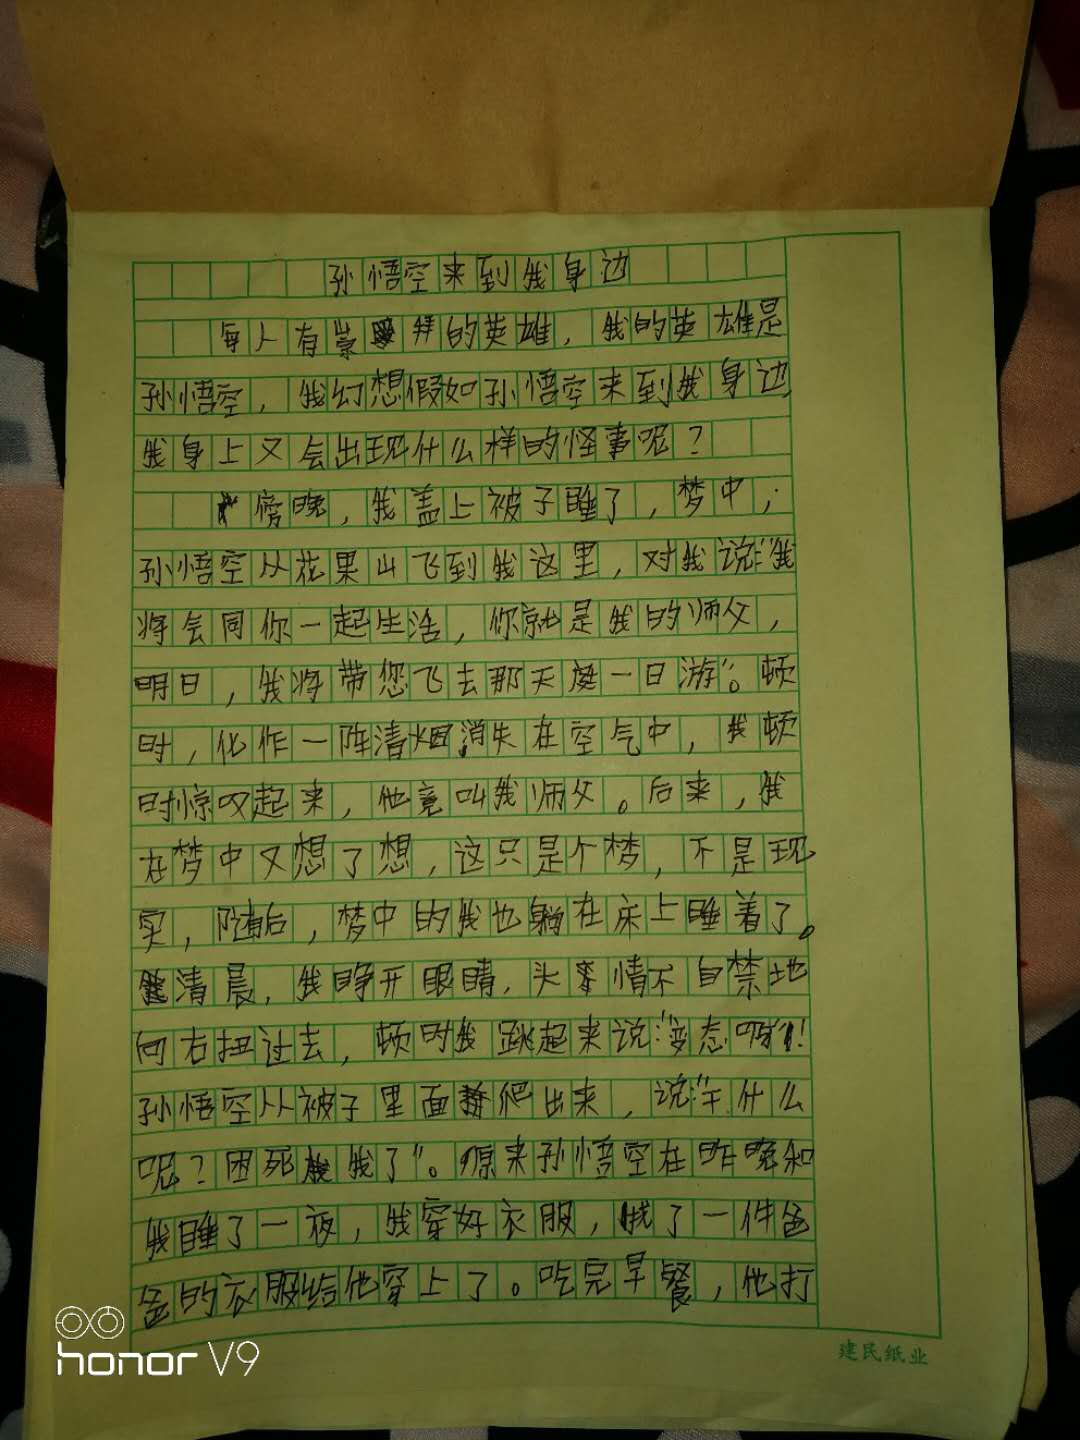 孙悟空来到我身边
每人有崇拜的英雄，我的英雄是
孙悟空，我幻想假如孙悟空来到我身边，
我身上又会出现什么样的怪事呢？
傍晚，我盖上被子睡了，梦中，
孙悟空从花果山飞到我这里，对我说：“我
将会同你一起生活，你就是我的师父，
明日，我将带您飞去那天庭一日游”。顿
时，化作一阵清烟消失在空气中，我顿
时惊叹起来，他竟叫我师父。后来，我
在梦中又想了想，这只是个梦，不是现
实，随后，梦中的我也躺在床上睡着了。
清晨，我睁开眼睛，头率情不自禁地
向右扭过去，顿时我跳起来说：“变态呀”！
孙悟空从被子里面爬出来，说：“干什么
呢？困死我了”。原来孙悟空在昨晚和
我睡了一夜，我穿好衣服，找了一件爸
爸的衣服给他穿上了。吃完早餐，他打
建民纸业
honor V9